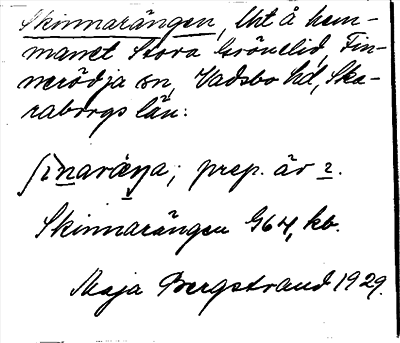 Skinnarängen, lht å hem-
manet Stora Grönelid, Fin-
nerödja sn, Vadsbo hd, Ska-
raborgs län:
ʃinaræŋa; prep. är 2.
Skinnarängen G64, kb.
Maja Bergstrand 1929.